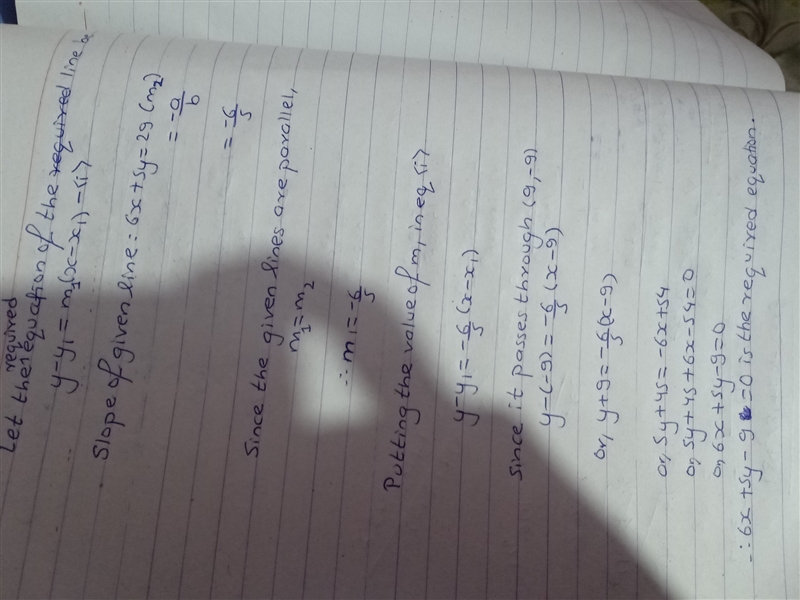 Let the required equation of the required line be
y-y₁ = m₁(x-x₁) -(i)
Slope of given line: 6x+5y=29 (m₂)
= -a/b
= -6/5
Since the given lines are parallel,
m₁=m₂
∴ m₁ = -6/5
Putting the value of m₁ in eq (i)
y-y₁ = -6/5 (x-x₁)
Since it passes through (9,-9)
y-(-9) = -6/5 (x-9)
or, y+9 = -6/5 (x-9)
or, 5y+45 = -6x+54
or, 5y+45+6x-54=0
or, 6x+5y-9=0
∴ 6x+5y-9=0 is the required equation.